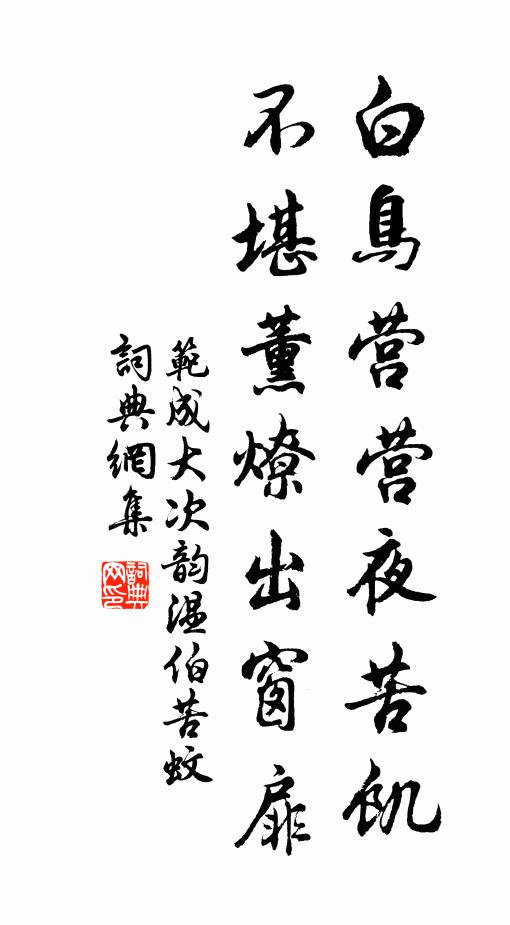 白鳥营营夜苦飢
不堪薰燎出窗扉
範成大次韵温伯苦蚊
詞典網集
詞典
网印